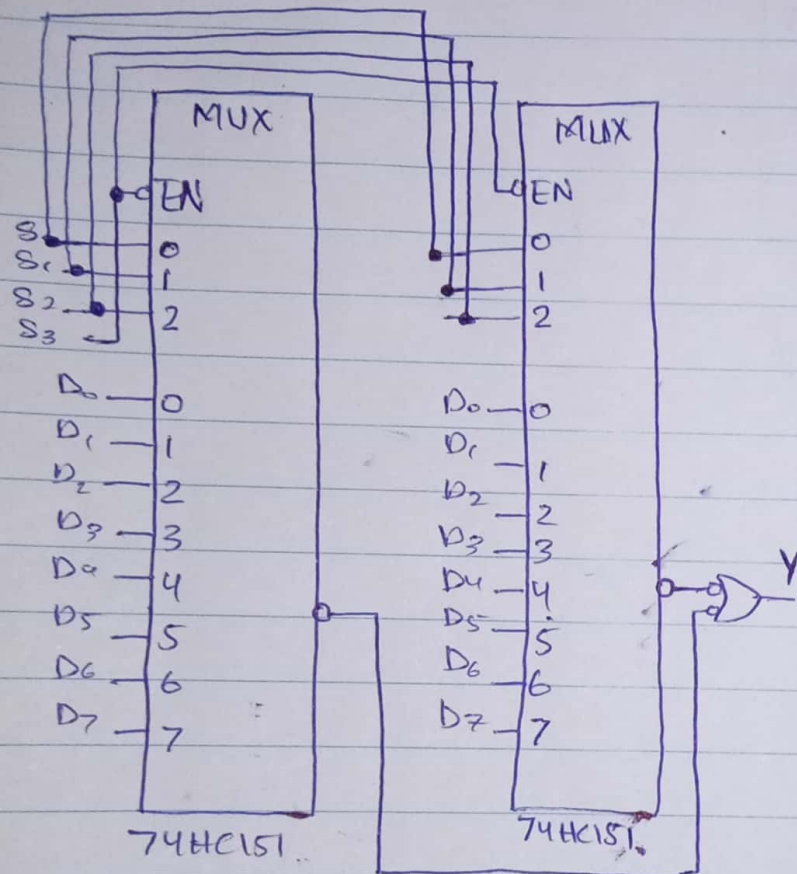 MUX
EN
S
0
S1
1
S2
2
S3
D0
0
D1
1
D2
2
D3
3
D4
4
D5
5
D6
6
D7
7
74HC151
MUX
EN
0
1
2
D0
0
D1
1
D2
2
D3
3
D4
4
D5
5
D6
6
D7
7
74HC151
Y